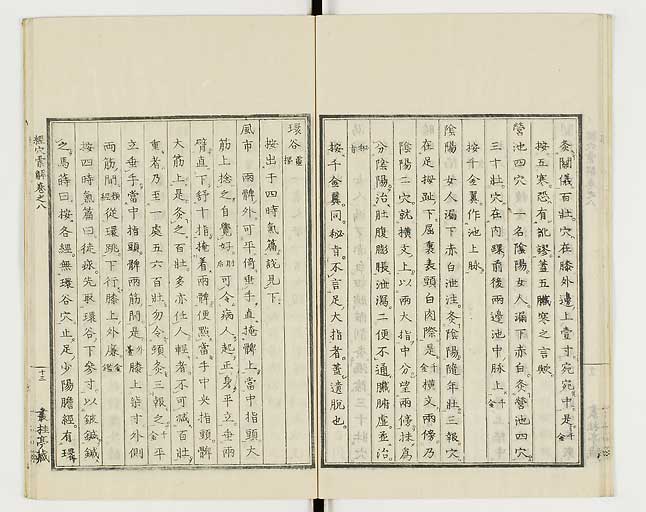 灸關儀百壯穴在膝外邊上壹寸宛宛中是千金
按五寒恐有訛謬蓋五臟寒之言歟
營池四穴一名陰陽女人漏下赤白灸營池四穴
三十壯穴在內踝前後兩邊池中脉上千金
按千金翼作池上脉
陰陽女人漏下赤白泄注灸陰陽隨年壯三報穴
在足拇趾下屈裏表頭白肉際是千金橫文兩傍乃
陰陽二穴就橫文上以兩大指中分望兩傍抹爲
分陰陽治肚腹膨脹泄瀉二便不通臟腑虛並治
按千金翼同秘旨不言足大指者蓋遺脫也
環谷靈樞
按出于四時氣篇說見下
風市兩髀外可平倚垂手直掩髀上當中指頭大
筋上捻之自覺好肘后可令病人起正身平立垂兩
臂直下舒十指掩着兩髀便點當手中央指頭髀
大筋上是灸之百壯多亦任人輕者不可減百壯
重者乃至一處五六百壯勿令頓灸三報之千金平
立垂手當中指頭髀兩筋間是千金膝上柒寸外側
兩筋間類經從環跳下行膝上外廉金鑑
按四時氣篇曰徒㽷先取環谷下參寸以鈹鍼鍼
之馬蒔曰按各經無環谷穴止足少陽膽經有環
經穴彙解卷之八
十三
叢桂亭藏